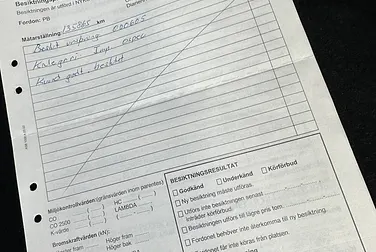 Besiktningsp
Besiktningen är utförd i NYK
Fordon: PB
Datum
Mätarställning 135865 km
Beslut ursprung 000605
Kategori: Imp. ospec
Kund godk. beslut
Miljökontrollvärden (gränsvärden inom parentes)
CO
HC
CO 2500
LAMBDA
K-värde
Bromskraftvärden (kN):
Vänster fram
Höger fram
Höger bak
BESIKTNINGSRESULTAT
Godkänd Underkänd Körförbud
Ny besiktning måste utföras.
Utförs inte besiktningen senast
inträder körförbud.
Besiktningen utförs till lägre pris tom.
Fordonet behöver inte återkomma till ny besiktning.
får inte köras från platsen.